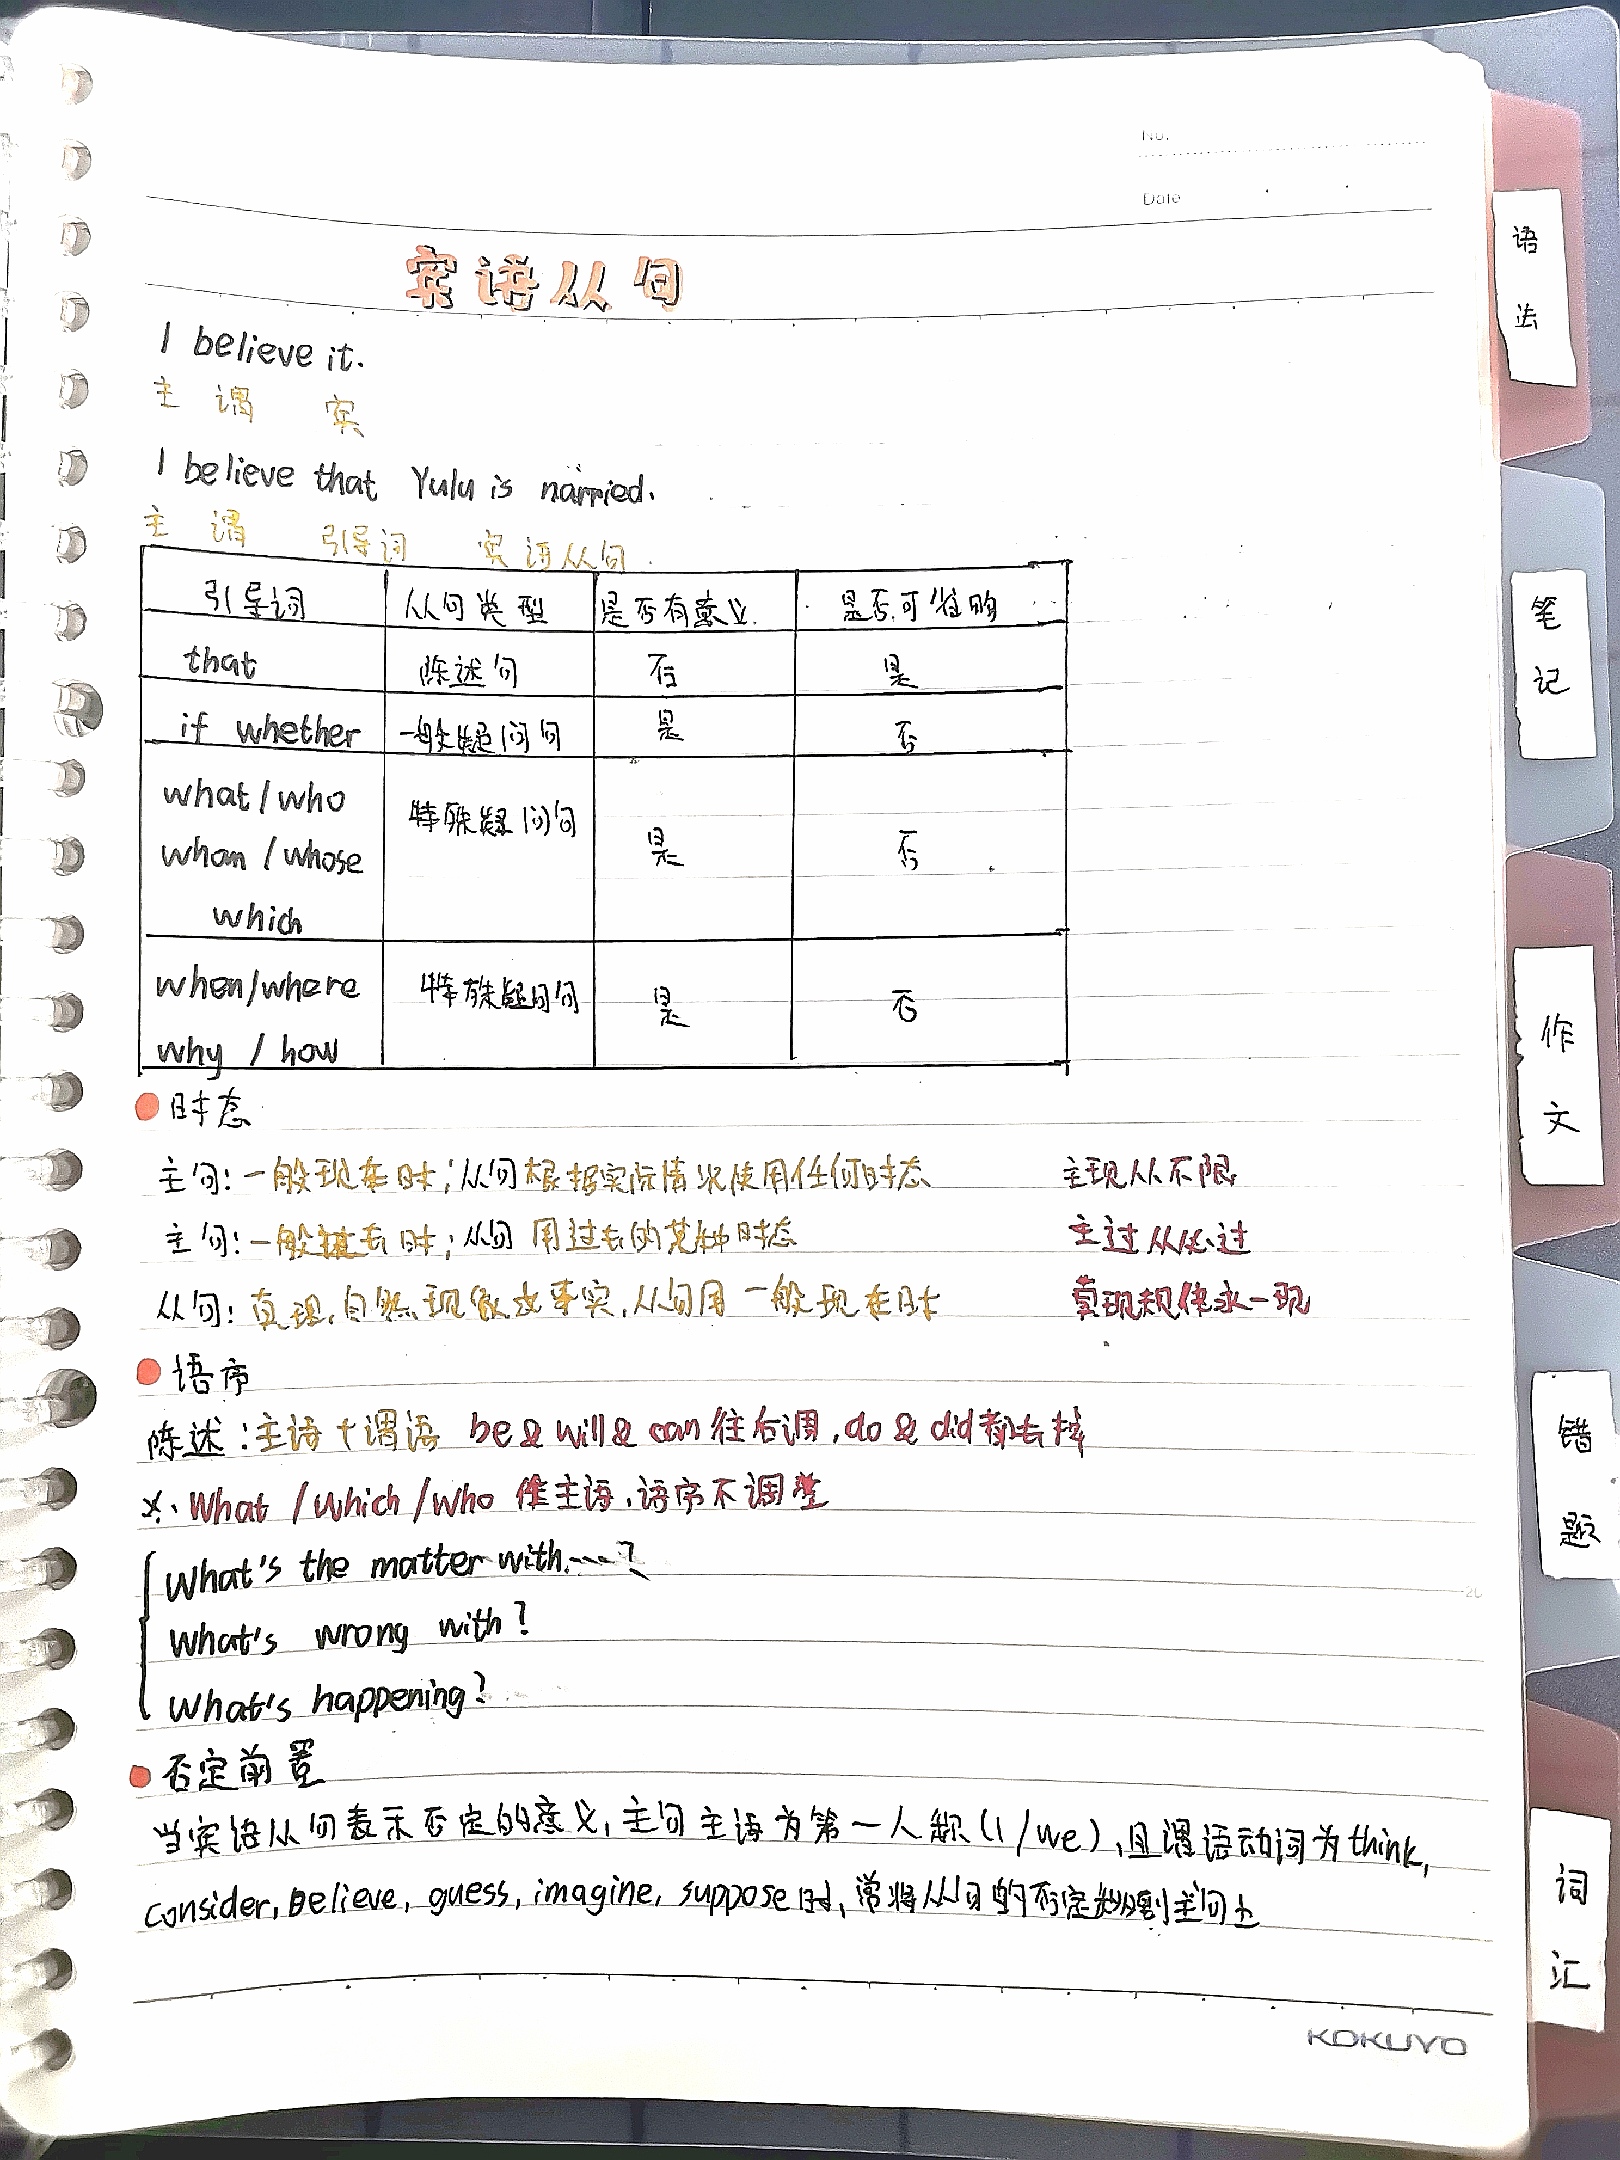 No.
Date
宾语从句
I believe it.
主 谓 宾
I believe that Yulu is narried.
主 谓 引导词 宾语从句.
引导词 从句类型 是否有意义 是否可省略
that 陈述句 否 是
if whether 一般疑问句 是 否
what/who
whom/whose
which
特殊疑问句 是 否
when/where
why/how
特殊疑问句 是 否
时态
主句:一般现在时;从句根据实际情况使用任何时态 主现从不限
主句:一般过去时;从句用过去的某种时态 主过从必过
从句:真理,自然现象或事实,从句用一般现在时 真理规律永一现
语序
陈述:主语+谓语 be & will & can 往后调,do & did都去掉
※ What/which/who 作主语,语序不调整
What's the matter with....?
What's wrong with?
What's happening?
否定前置
当宾语从句表示否定的意义,主句主语为第一人称(I/we),且谓语动词为think,
consider, Believe, guess, imagine, suppose时,常将从句的否定转移到主句上
20
KOKUYO
语法
笔记
作文
错题
词汇